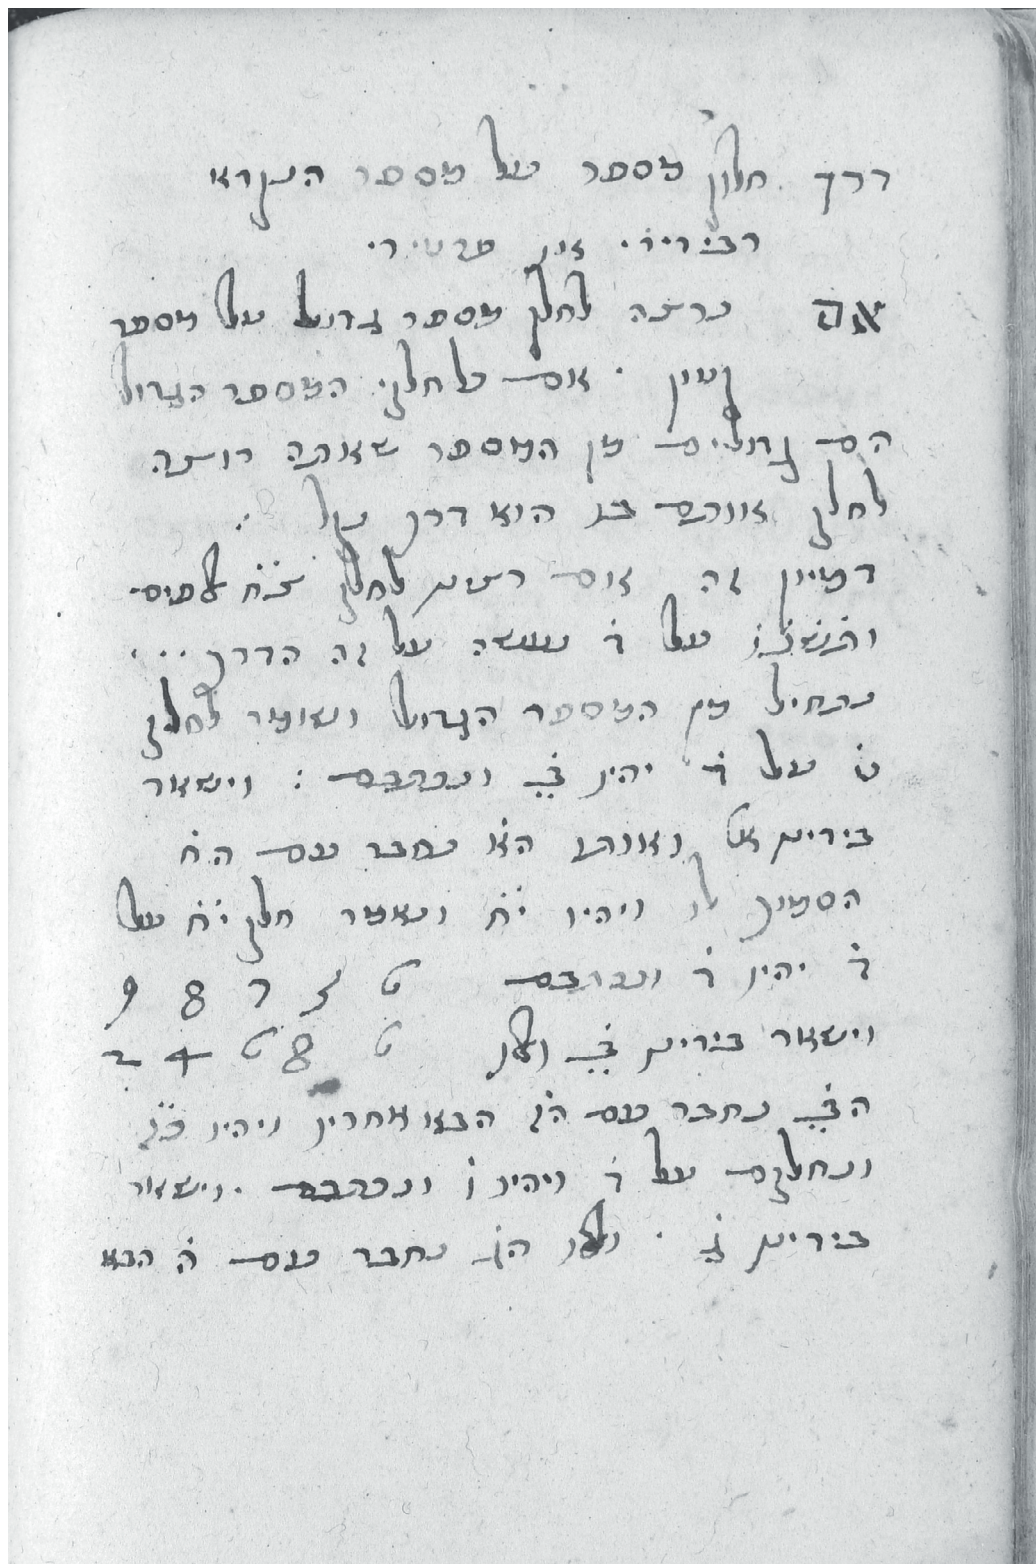 דרך חלוק מספר על מספר הנקרא
אם נרצה לחלק מספר גדול על מספר
קטון · אם כל חלקי המספר הגדול
הם גדולים מן המספר שאתה רוצה
לחלק אותם בו הוא דרך קל :
דמיון זה אם רצינו לחלק צ̇ח̇ אלפים
על ד̇ נעשה על זה הדרך · · ·
נתחיל מן המספר הגדול ונאמר לחלק
ט̇ על ד̇ יהיו ב̇ ונכתבם : וישאר
בידינו א̇ ואותו הא̇ נחבר עם הח̇
הסמוך לו ויהיו י̇ח̇ ונאמר חלק י̇ח̇ על
ד̇ יהיו ד̇ ונכתבם 9 8 7 5 6
וישאר בידינו ב̇ ואלו 2 4 6 8 6
הב̇ נחבר עם הז̇ הבא אחריו ויהיו כ̇ז̇
ונחלקם על ד̇ ויהיו ו̇ ונכתבם · וישאר
בידינו ג̇ · ואלו הג̇ נחבר עם ה̇ הבא